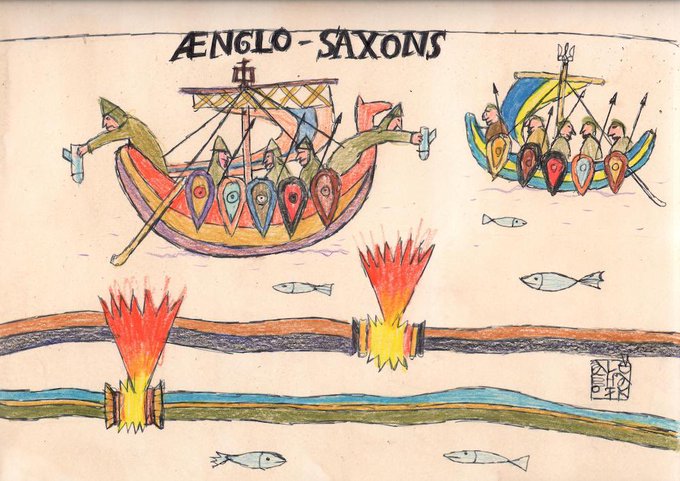 ÆNGLO-SAXONS